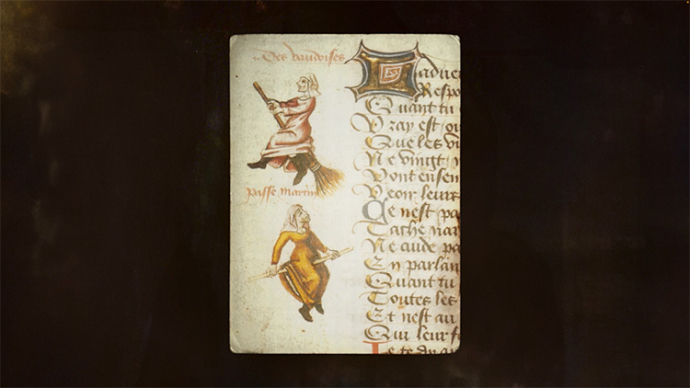 Des vaudoises
passe martin
Ladver
Respo
Quant tu
Vray est ou
Que les vi
Ne vingt n
Vont ensem
Veoir leur
Ce nest pa
Tache nar
Ne aude pa
En parlan
Quant tu
Toutes les
Et nest au
Qui leur f